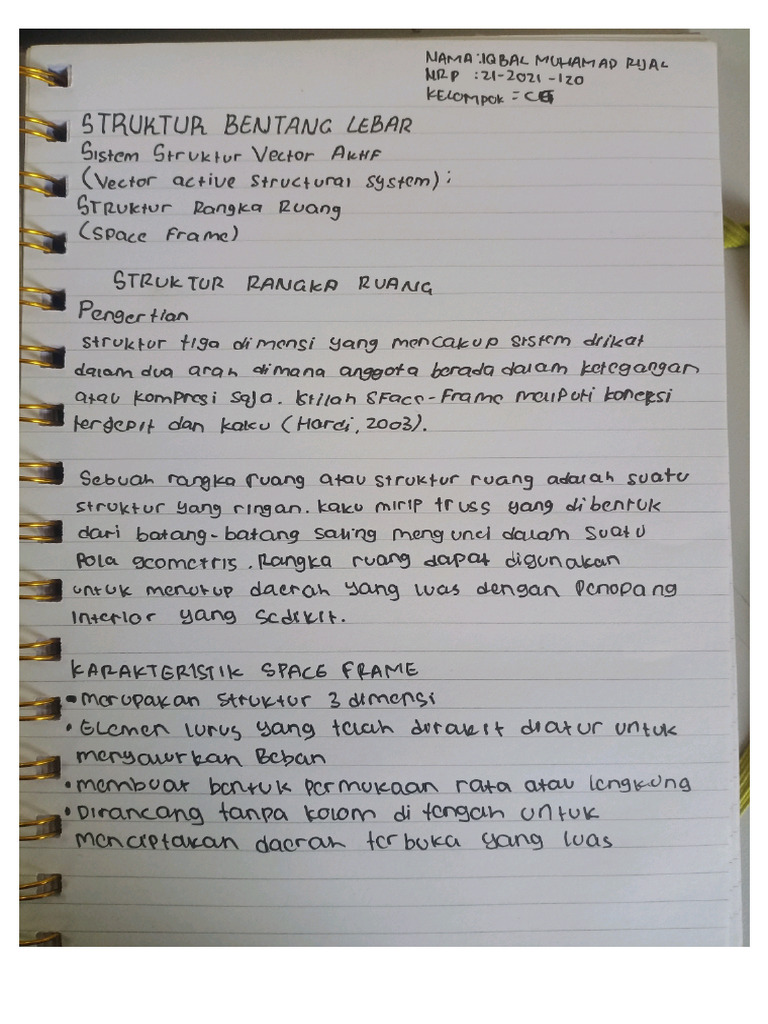 NAMA : IQBAL MUHAMAD RIJAL
NRP : 21-2021-120
KELOMPOK =
STRUKTUR BENTANG LEBAR
Sistem Struktur Vector Aktif
(Vector active structural system);
STRuktur Rangka Ruang
(Space Frame)
STRUKTUR RANGKA RUANG
Pengertian
Struktur tiga dimensi yang mencakup sistem diikat
dalam dua arah dimana anggota berada dalam ketegangan
atau kompresi saja. Istilah SFace-Frame meliputi koneksi
terjepit dan kaku (Hardi, 2003).
Sebuah rangka ruang atau struktur ruang adalah suatu
struktur yang ringan. kaku mirip truss yang dibentuk
dari batang-batang saling mengunci dalam suatu
Pola geometris. Rangka ruang dapat digunakan
untuk menutup daerah yang luas dengan Penopang
Interior yang sedikit.
KARAKTERISTIK SPACE FRAME
• merupakan struktur 3 dimensi
• Elemen lurus yang telah dirakit diatur untuk
menyalurkan Beban
• membuat bentuk permukaan rata atau lengkung
• Dirancang tanpa kolom di tengah untuk
menciptakan daerah terbuka yang luas